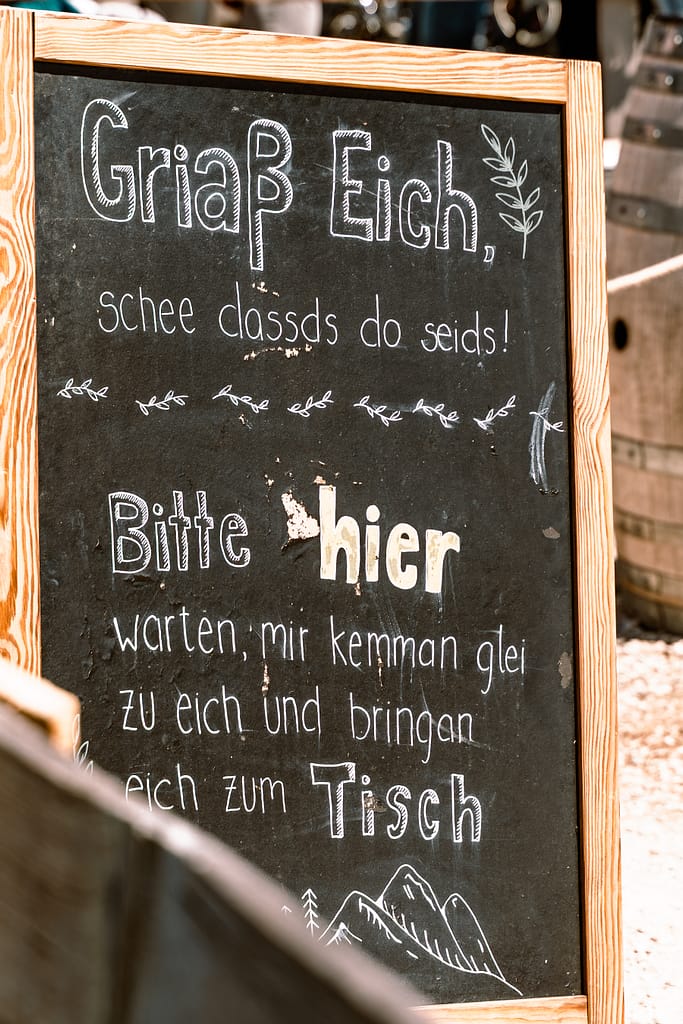 Griaß Eich,
schee dassds do seids!
Bitte hier
warten, mir kemman glei
zu eich und bringan
eich zum Tisch